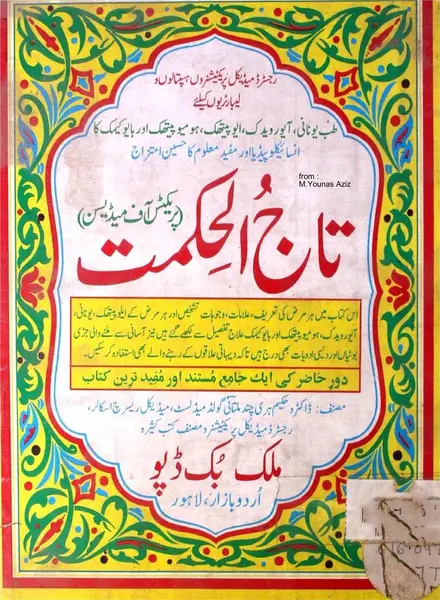 رجسٹرڈ میڈیکل پریکٹیشنروں، ہسپتالوں و
لیبارٹریوں کیلئے
طب یونانی، آیورویدک، ایلوپیتھک، ہومیوپیتھک اور بایوکیمک کا
انسائیکلوپیڈیا اور مفید معلوم کا حسین امتزاج
from :
M.Younas Aziz
تاج الحکمت
(پریکٹس آف میڈیسن)
اس کتاب میں ہر مرض کی تعریف، علامات، وجوہات تشخیص اور ہر مرض کے ایلوپیتھک، یونانی،
آیورویدک، ہومیوپیتھک اور بایوکیمک علاج تفصیل سے لکھے گئے ہیں نیز آسانی سے ملنے والی جڑی
بوٹیاں اور دیسی ادویات بھی درج ہیں تاکہ دیہاتی علاقوں کے رہنے والے بھی استفادہ کر سکیں۔
دور حاضر کی ایک جامع مستند اور مفید ترین کتاب
مصنف: ڈاکٹر و حکیم ہری چند ملتانی گولڈ میڈلسٹ، میڈیکل ریسرچ اسکالر،
رجسٹرڈ میڈیکل پریکٹیشنر و مصنف کتب کثیرہ
ملک بک ڈپو
اردو بازار، لاہور